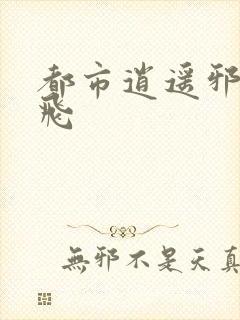 都市逍遥邪
飛
無邪不是天真